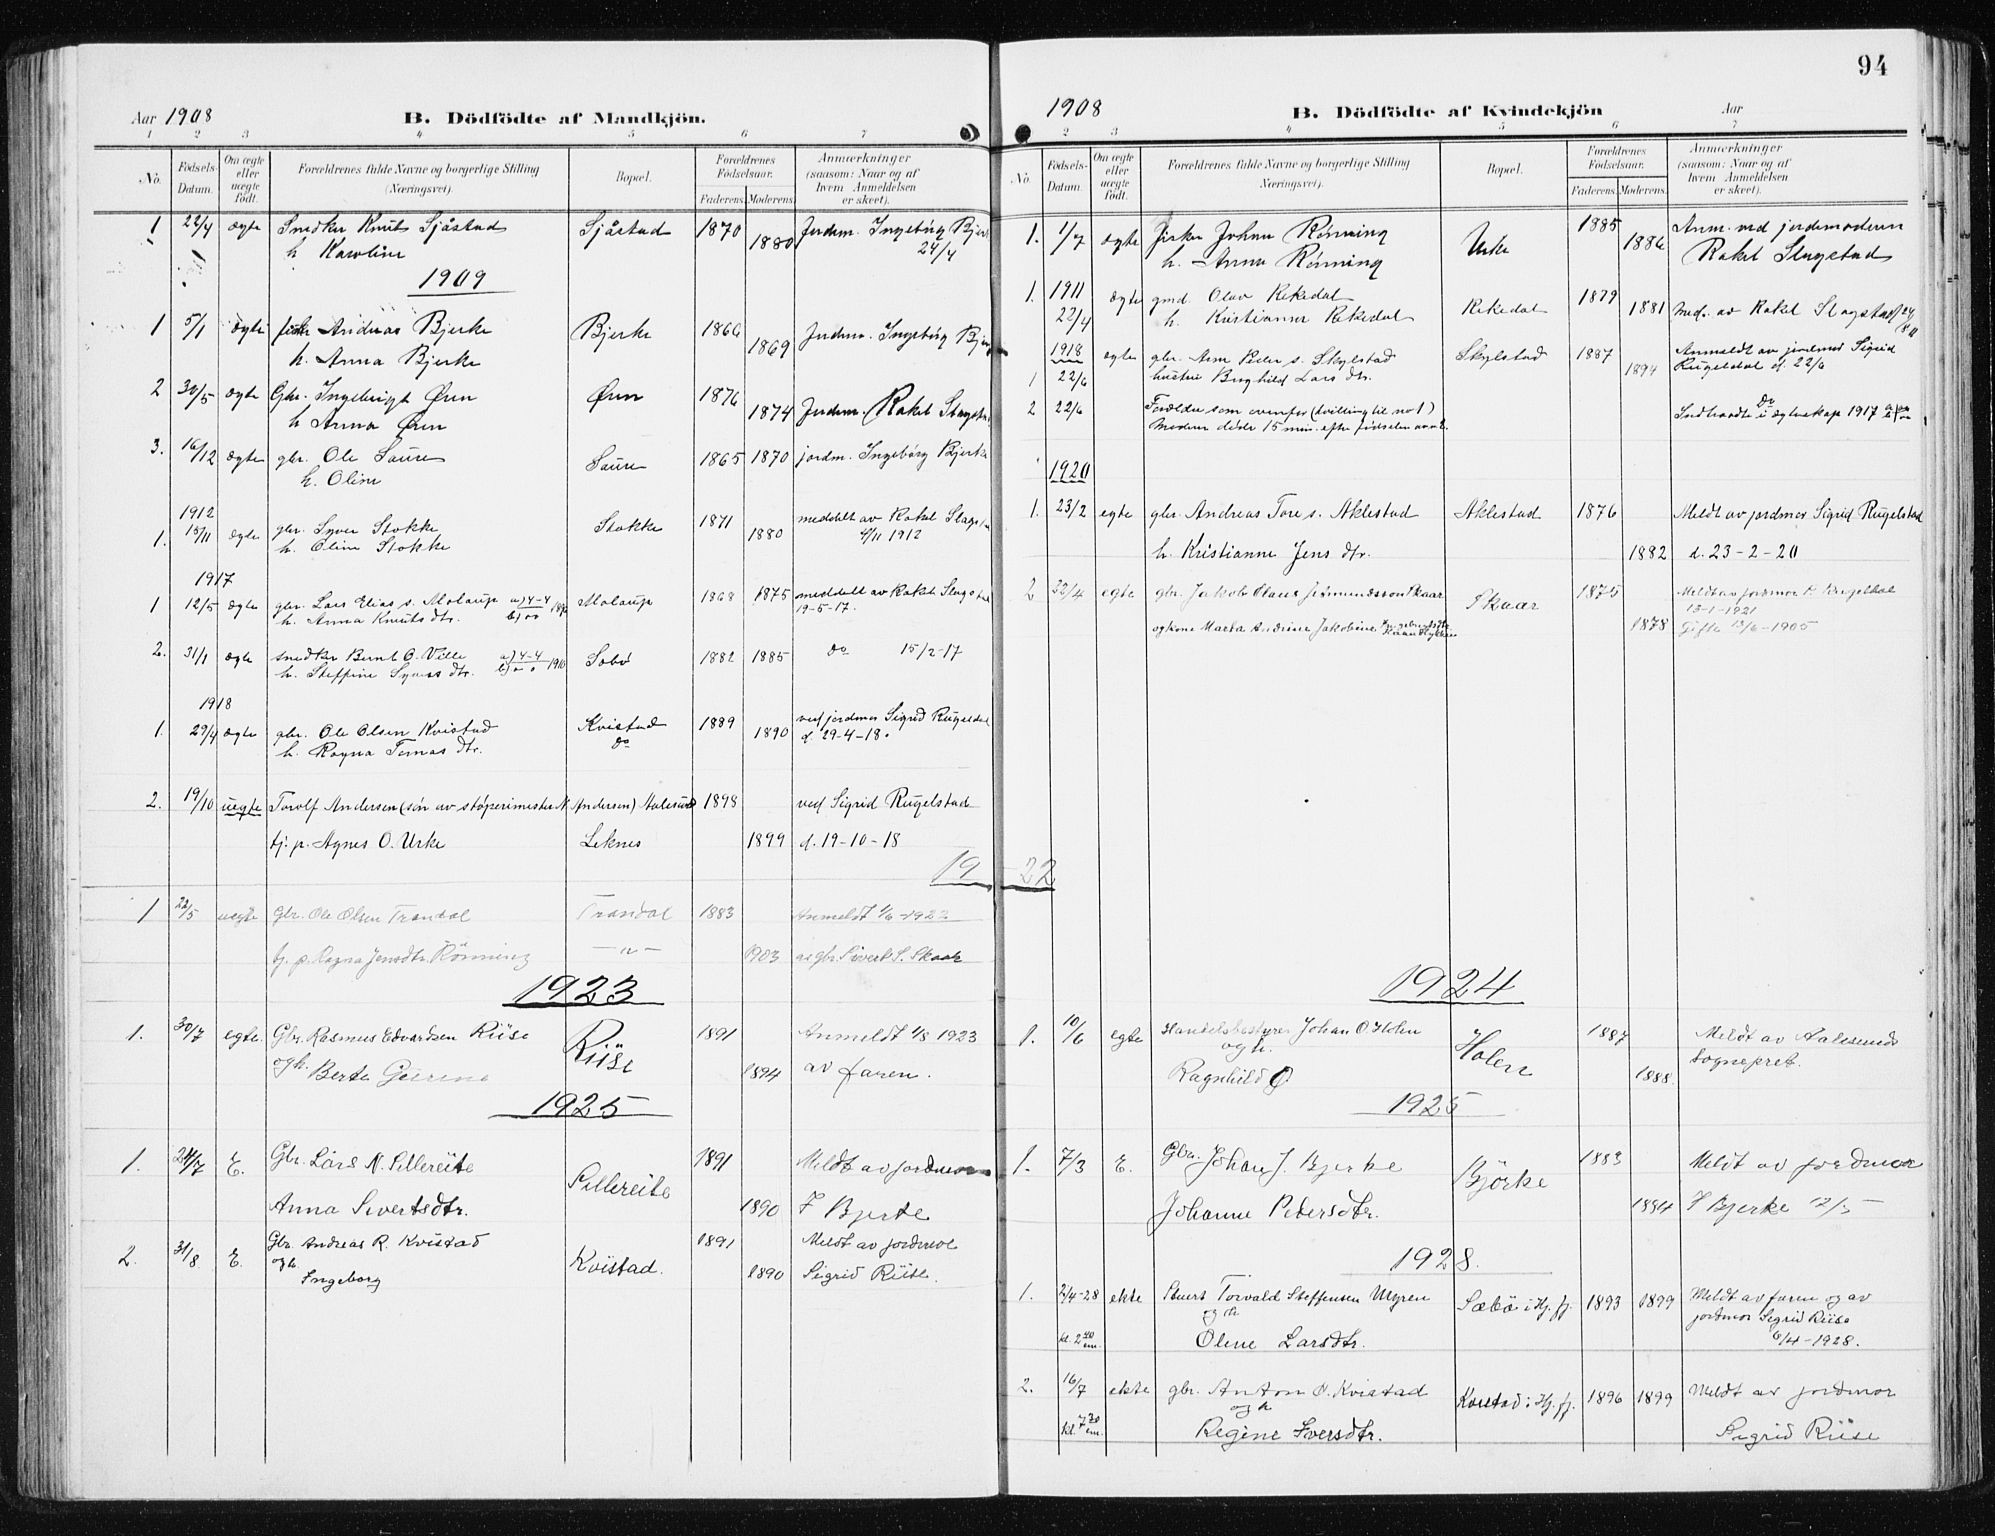 94
Aar 1908 B. Dödfödte af Mandkjön.
1 2 3 4 5 6 7
No. Födsels-Datum. Om ægte eller uægte födt. Forældrenes fulde Navne og borgerlige Stilling (Næringsvei). Bopæl. Forældrenes Födselsaar. Faderens. Moderens. Anmærkninger (saasom: Naar og af hvem Anmeldelsen er skeet).
1 22/4 ægte Snedker Knut Sjåstad Sjåstad 1870 1880 Jordm. Ingebörg Bjerke
h Karoline 24/4
1909
1 5/1 ægte fisker Andreas Bjerke Bjerke 1866 1869 Jordm. Ingebörg Bjerke
h. Anna Bjerke
2 30/5 ægte Gbr. Ingebrigt Øren Øren 1876 1874 Jordm. Rakel Slagstad
h Anna Øren
3. 16/12 ægte gbr. Ole Saure Saure 1865 1870 jordm. Ingebörg Bjerke
h. Oline
1912
1. 15/11 ægte gbr. Syver Stokke Stokke 1871 1880 meddelt av Rakel Slagst
h. Oline Stokke /11 1912
1917
1 12/5 ægte gbr. Lars Elias s. Molaup a) 4-4 Molaup 1868 1875 meddelt av Rakel Slagstad
h. Anna Knuts dtr. 19-5-17.
2. 31/1 ægte snedker Bernt O. Ville a) 4-4 1910 Sæbö 1882 1885 do 15/2-17
h. Steffine Syvers dtr.
1918
1. 29/4 ægte gbr. Ole Olsen Kvistad Kvistad 1889 1890 ved jordmor Sigrid Rugeldal
h. Ragna Tomas dtr. do d. 29-4-18.
2. 19/10 uegte Torolf Andersen (sön av støperimester N. Andersen) Aalesund 1898 ved Sigrid Rugelstad
tj. p. Agnes O. Urke Leknes 1899 d. 19-10-18
1922
1 22/5 uegte Gbr. Ole Olsen Trandal Trandal 1883 Anmeldt 1/6-1922
tj. p. Ragna Jensdtr. Rönning —"— 1903 av gbr. Sivert S. Skaar
1923
1. 30/7 egte. Gbr. Rasmus Edvardsen Riise Riise 1891 Anmeldt 1/8 1923
og h. Berte Geirine 1894 av faren.
1925
1. 24/7 E. Gbr. Lars N. Sillereite Sillereite 1891 Meldt av jordmor
Anna Sivertsdtr. 1890 I Bjerke
2. 31/8 E. Gbr. Andreas R. Kvistad Kvistad. 1891 Meldt av jordmor
og h. Ingeborg 1890 Sigrid Riise.
1908 B. Dödfödte af Kvindekjön Aar
2 3 4 5 6 7
No. Födsels-Datum. Om ægte eller uægte födt. Forældrenes fulde Navne og borgerlige Stilling (Næringsvei). Bopæl. Forældrenes Födselsaar. Faderens. Moderens. Anmærkninger (saasom: Naar og af hvem Anmeldelsen er skeet).
1. 1/7 ægte fisker Johan Rönning Urke 1885 1886 Anm. ved jordemoderen
h. Anna Rönning Rakel Slagstad
1911
1. 22/4 ægte gmd. Olav Rekedal Rekedal 1879 1881 Med. av Rakel Slagstad
h. Kristianna Rekedal
1918
1 22/6 ægte gbr. Arne Peder s. Skylstad Skylstad 1887 1894 Anmeldt av jordmor Sigrid
hustru Borghild Lars dtr. Rugeldal d. 22/6
2 22/6 Forældre som ovenfor (tvilling til no 1) do
Moderen döde 15 min. efter födselen Indtraadte i ægteskap 1917
1920
1. 23/2 egte gbr. Andreas Tore s. Aklestad Aklestad 1876 Meldt av jordmor Sigrid Rugelstad
h. Kristianne Jens dtr. 1882 d. 23-2-20
2 22/4 egte gbr. Jakob Olaus Skaar Skaar 1875 Meldt av jordmor
13-1-1921
og kone Marta Andrine Jakobine 1878 Gifte 13/6-1905
1924
1. 10/6 egte Handelsbestyrer Johan O. Holen Holen 1887 Meldt av Aalesunds
og h. Ragnhild O 1888. sogneprest.
1925
1. 7/3 E. Gbr. Johan J. Bjerke Björke 1883 Meldt av jordmor
Johanne Petersdtr. 1884 I Bjerke 12/3
1928.
1. 2/4-28 ekte Stuert Torvald Steffensen Myren Sæbö i Hj. fj. 1893 1899 Meldt av faren og av
og h. jordmor Sigrid Riise
kl. 2 40 em. Oline Larsdtr. 6/4-1928.
2. 16/7 ekte gbr. Anton O. Kvistad Kvistad i Hj. fj. 1896 1899 Meldt av jordmor
og h
kl. 7 30 em. Regine Iversdtr. Sigrid Riise